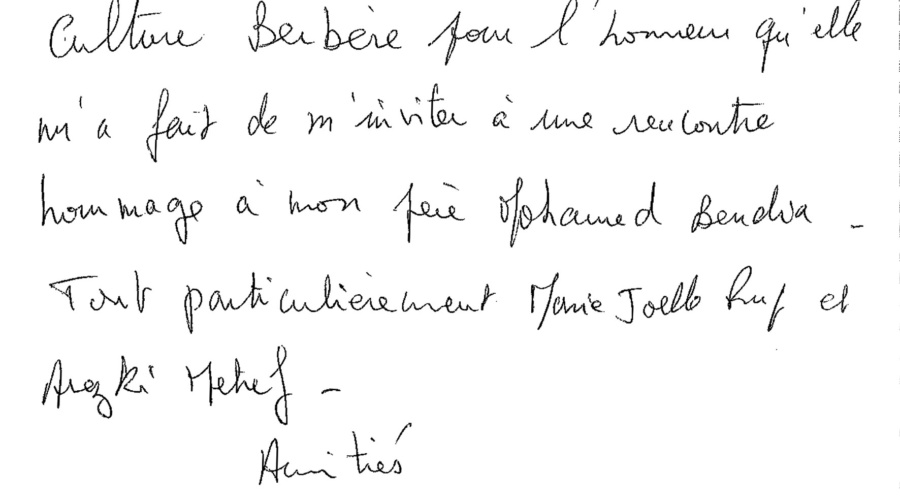 Culture Berbère pour l'honneur qu'elle
m'a fait de m'inviter à une rencontre
hommage à mon père Mohamed Bendria -
Tout particulièrement Marie Joelle Ruf et
Arezki Metref -
Amitiés